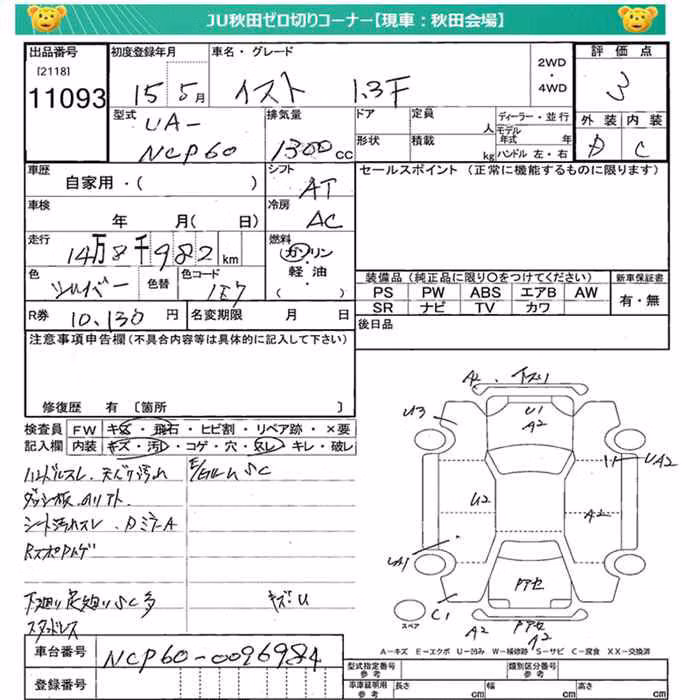 JU秋田ゼロ切りコーナー【現車：秋田会場】
出品番号
[2118]
11093
初度登録年月
15 5月
車名・グレード
イスト 1.3F
2WD
・
4WD
評価点
3
外装 内装
D C
型式
UA-
NCP60
排気量
1300cc
ドア
定員
人
ディーラー・並行
モデル年式 年
形状
積載
kg
ハンドル 左・右
車歴
自家用・( )
シフト
AT
セールスポイント (正常に機能するものに限ります)
車検
年 月( 日)
冷房
AC
走行
14万8千982km
燃料
ガソリン
・
軽油
( )
色
シルバー
色替
色コード
1E7
装備品 (純正品に限り○をつけてください)
新車保証書
PS PW ABS エアB AW
有・無
SR ナビ TV カワ
R券 10,130円
名変期限 月 日
後日品
注意事項申告欄(不具合内容等は具体的に記入して下さい)
修復歴 有 〔箇所 〕
検査員 FW キズ・飛石・ヒビ割・リペア跡・×要
記入欄 内装 キズ・汚レ・コゲ・穴・スレ・キレ・破レ
ハンドルスレ
シート汚れスレ
下廻り足廻りSC多
キズ:U
スタッドレス
車台番号 NCP60-0096984
登録番号
A2
U3
U1
A2
UA2
U2
A2
UA1
C1
A2
A2
スペア
A−キズ E−エクボ U−凹み W−補修跡 S−サビ C−腐食 XX−交換済
型式指定番号
参考
類別区分番号
参考
車庫証明用
参考
長さ cm
幅 cm
高さ cm